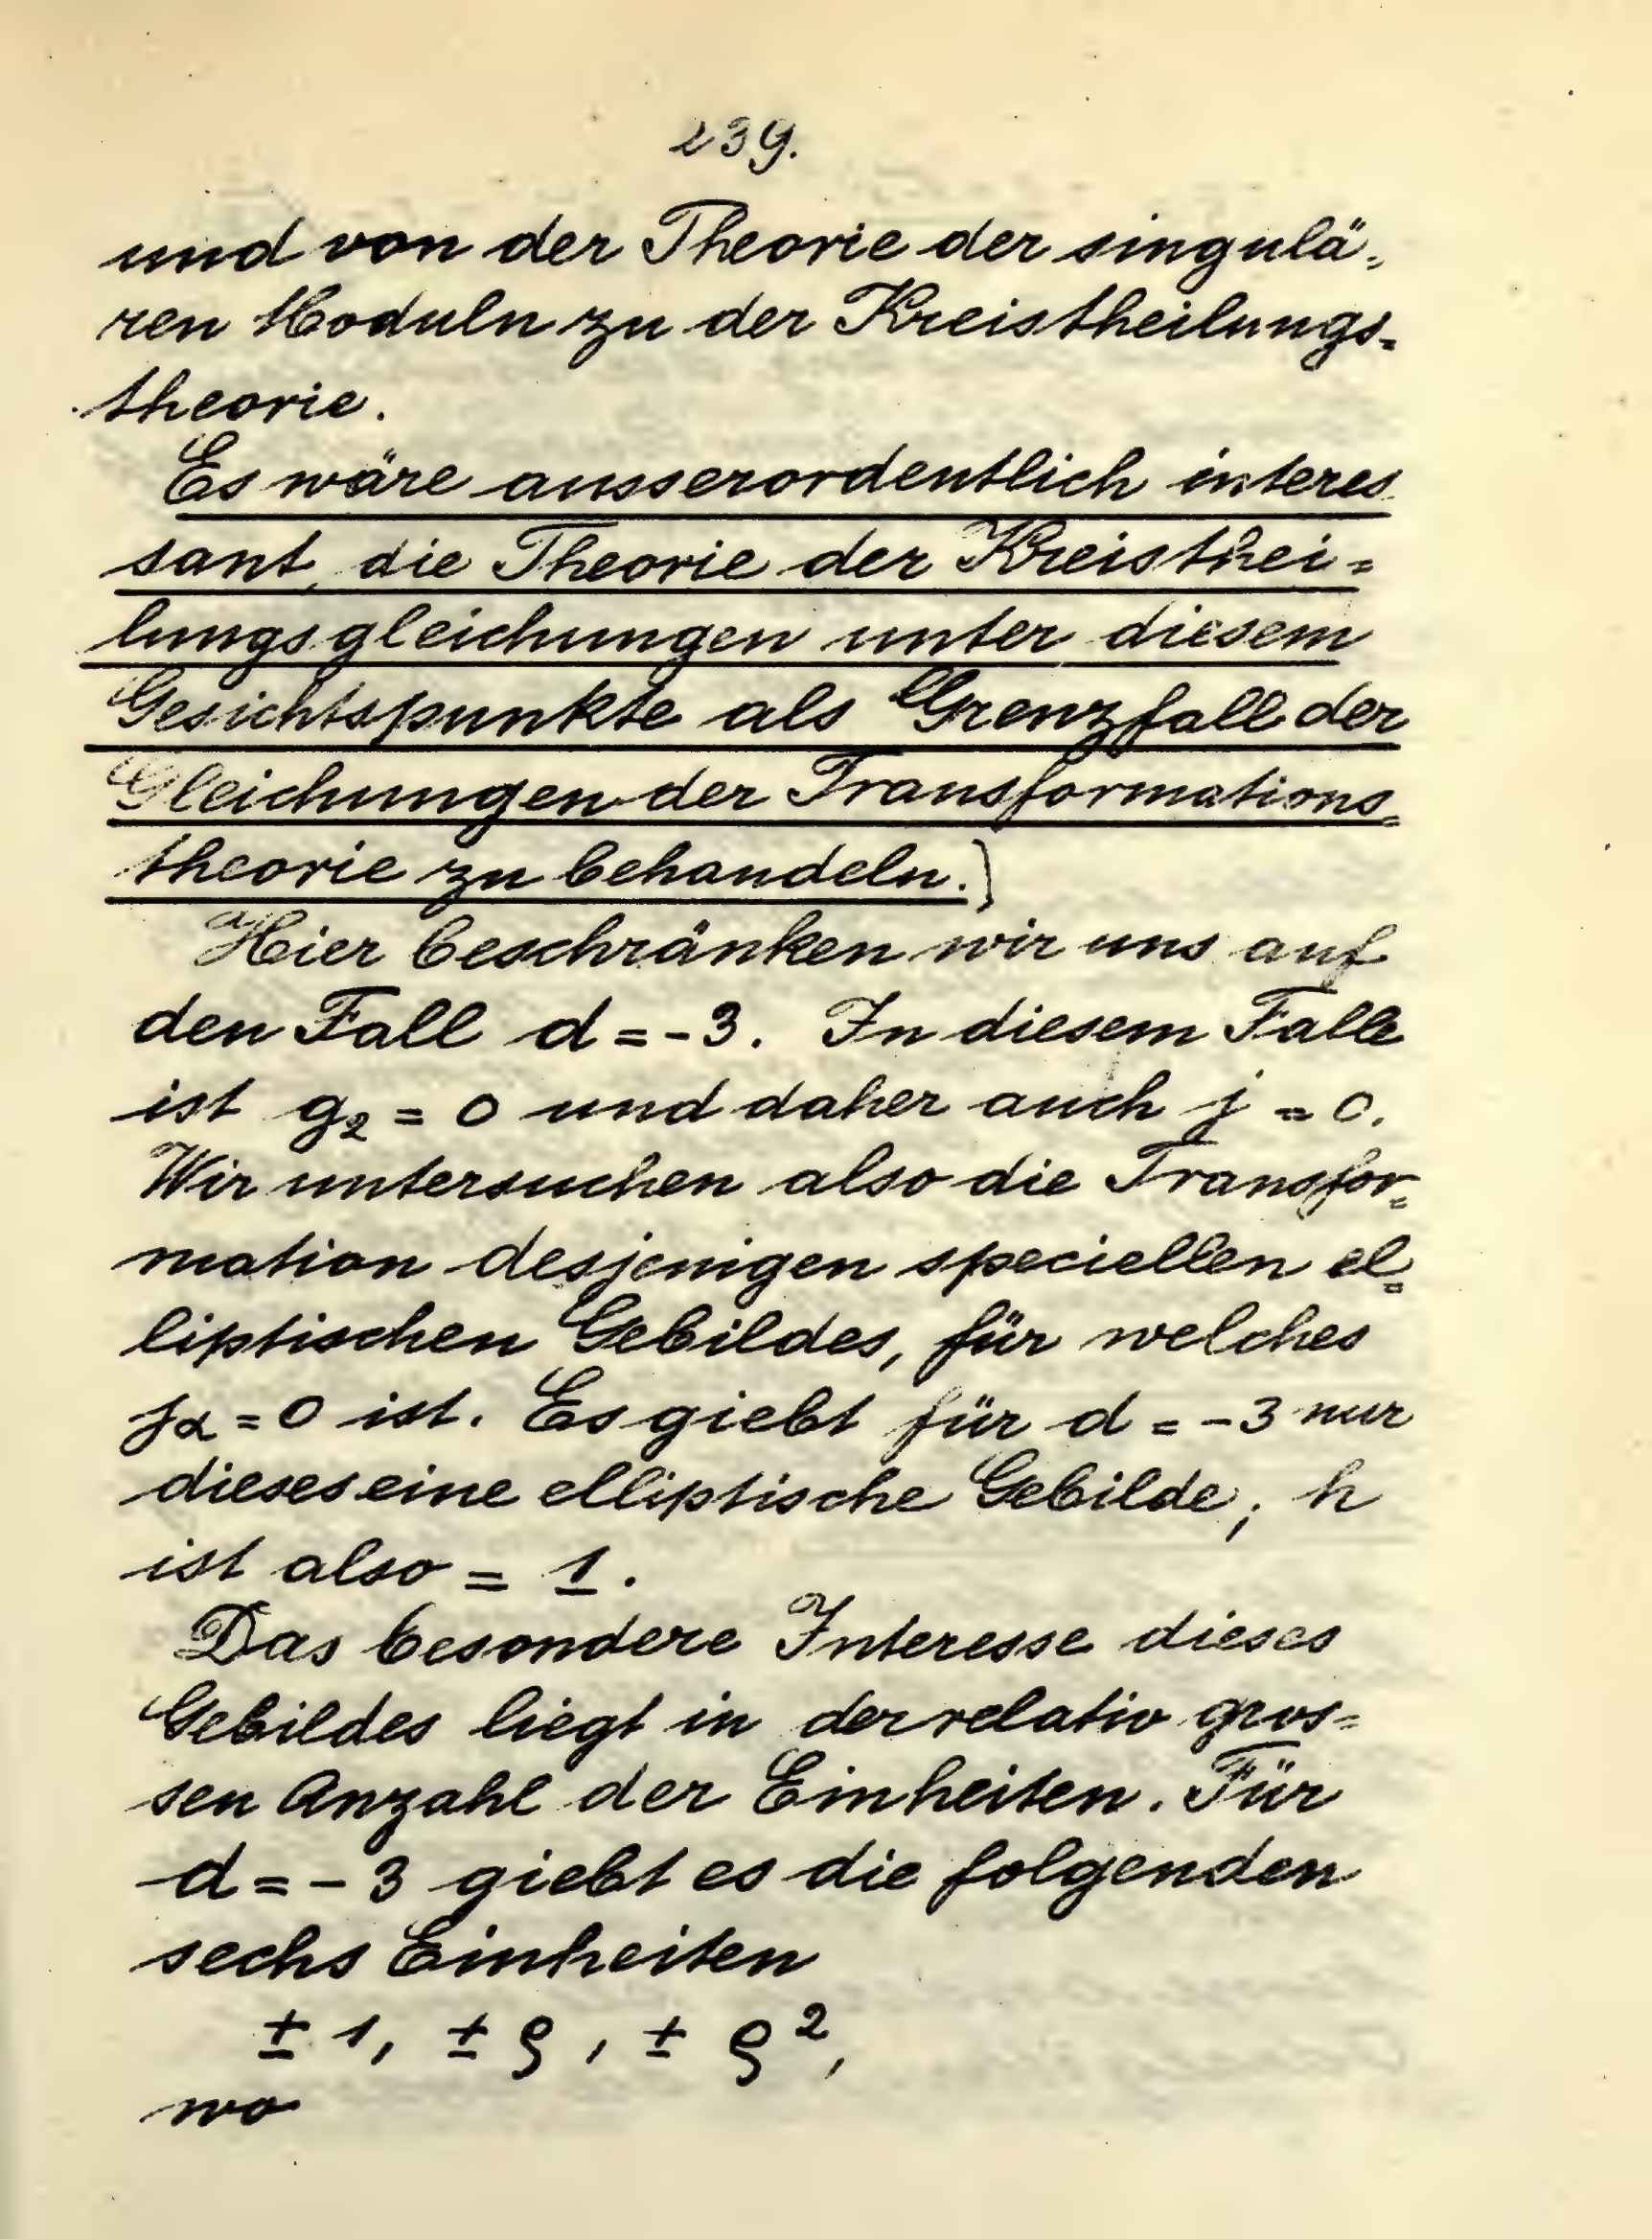 239.
und von der Theorie der singulä=
ren Moduln zu der Kreistheilungs=
theorie.
Es wäre ausserordentlich interes
sant, die Theorie der Kreisthei=
lungsgleichungen unter diesem
Gesichtspunkte als Grenzfall der
Gleichungen der Transformations=
theorie zu behandeln.]
Hier beschränken wir uns auf
den Fall d = -3. In diesem Falle
ist g₂ = 0 und daher auch j = 0.
Wir untersuchen also die Transfor=
mation desjenigen speciellen el=
liptischen Gebildes, für welches
jα = 0 ist. Es giebt für d = -3 nur
dieses eine elliptische Gebilde; h
ist also = 1.
Das besondere Interesse dieses
Gebildes liegt in der relativ gros=
sen Anzahl der Einheiten. Für
d = -3 giebt es die folgenden
sechs Einheiten
± 1, ± ϱ, ± ϱ²,
wo